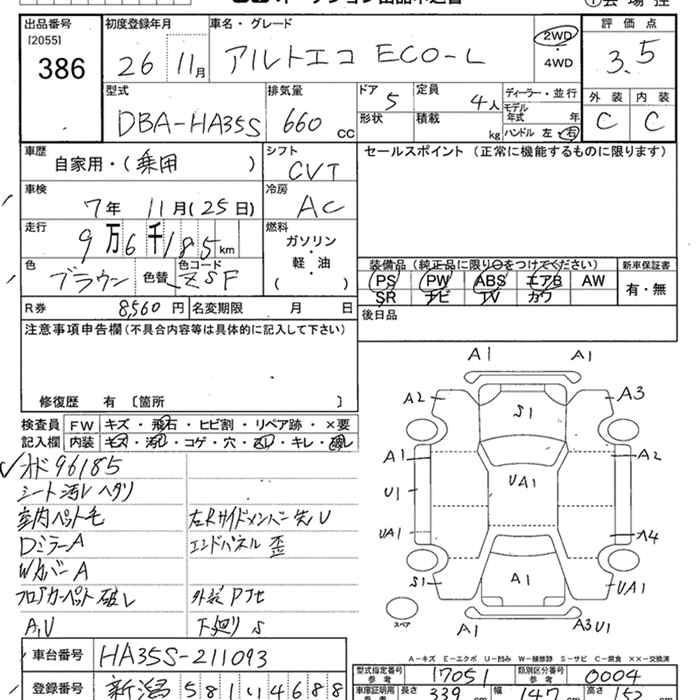 出品番号 初度登録年月 車名・グレード 評価点
[2055] 386 26 11月 アルトエコ ECO-L 2WD・4WD 3.5
型式 排気量 ドア 定員 ディーラー・並行 外装 内装
DBA-HA35S 660cc 5 4人 モデル年式 年 C C
形状 積載 kg ハンドル 左・右
車歴 シフト セールスポイント (正常に機能するものに限ります)
自家用・(乗用) CVT
車検 冷房
7年 11月(25日) AC
走行 燃料
9万6千185km ガソリン・軽・油
色 色替 色コード 装備品 (純正品に限り○をつけてください) 新車保証書
ブラウン ZSF ( ) PS PW ABS エアB AW 有・無
SR ナビ TV カワ
R券 8,560円 名変期限 月 日 後日品
注意事項申告欄 (不具合内容等は具体的に記入して下さい)
修復歴 有 [箇所 ]
検査員 FW キズ・飛石・ヒビ割・リペア跡・×要
記入欄 内装 キズ・汚レ・コゲ・穴・・キレ・破レ
96185
シート汚レ ヘタリ
室内ペット毛 左Rサイドメンバー先U
DミラーA エンドパネル歪
WカバーA
フロアカーペット破レ
A,U 下廻りS
A1 A1
A2 A3
S1
A1 A2
U1 UA1
UA1 A4
S1 A1 UA1
スペア A3 U1
A-キズ E-エクボ U-凹み W-補修跡 S-サビ C-腐食 ××-交換済
車台番号 HA35S-211093 型式指定番号 参考 17051 類別区分番号 参考 0004
登録番号 新潟 581 い 4688 車庫証明用 参考 長さ 339cm 幅 147cm 高さ 152